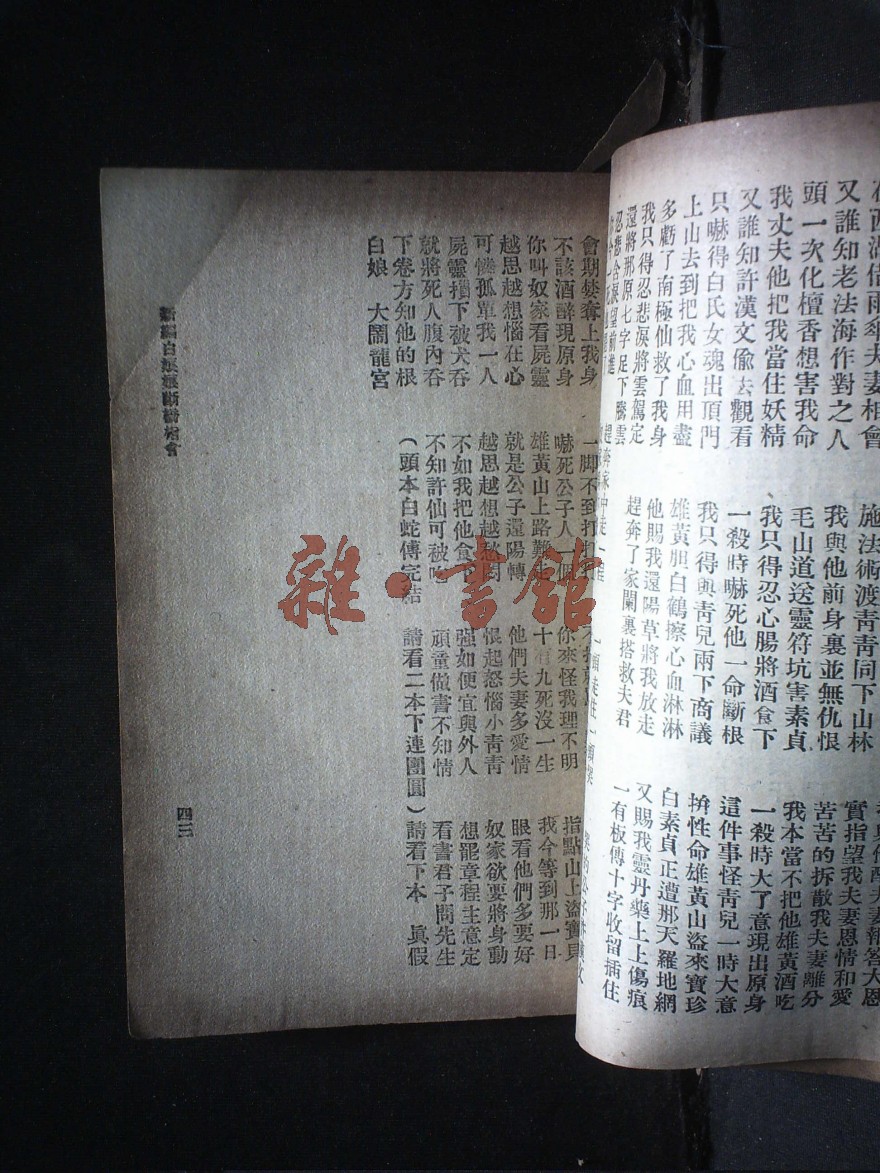 西湖借雨傘夫妻相會
施法術渡青青同下山林
與他配夫妻報答大恩
又誰知老法海作對之人
我與他前身裏並無仇恨
實指望我夫妻恩情和愛
頭一次化檀香想害我命
毛山道送靈符坑害素貞
苦苦的拆散我夫妻離分
我丈夫他把我當住妖精
我只得忍心腸將酒食下
我本當不把他雄黃酒吃
又誰知許漢文偷去觀看
一殺時嚇死他一命斷根
一殺時大了意現出原身
只嚇得白氏女魂出頂門
我只得與青兒兩下商議
這件事怪青兒一時大意
上山去到把我心血用盡
雄黃胆白鶴擦心血淋淋
拚性命雄黃山盜來寶珍
多虧了南極仙救了我身
他賜我還陽草將我放走
白素貞正遭那天羅地網
我只得忍悲淚將雲駕定
趕奔了家閫裏搭救夫君
又賜我靈丹藥上上傷痕
還將那原七字足下騰雲
一有板傳十字收留插住
忍悲含淚望前進
會期婪奪上我身
一脚不到打
指點山上盜寶貝
不該酒醉現原身
嚇死公子人一個
你來怪我理不明
我今等到那一日
你叫奴家看屍靈
雄黃山上路難走
十有九死沒一生
眼看他們多要好
越思越想惱在心
就是公子還陽轉
他們夫妻多愛情
奴家欲要將身動
可憐孤單我一人
越思越想越愁悶
恨起怒惱小青青
想罷章程生意定
屍靈攢下被犬吞
不如我把他食下
强如便宜與外人
看書君子問先生
就將死人腹內吞
不知許仙可被
頑童做書不知情
下卷方知他的根
(頭本白蛇傳完結
請看二本下連團圓)
請看下本 眞假
白娘 大鬧龍宮
新編白娘娘斷橋相會
四三
雜·書館